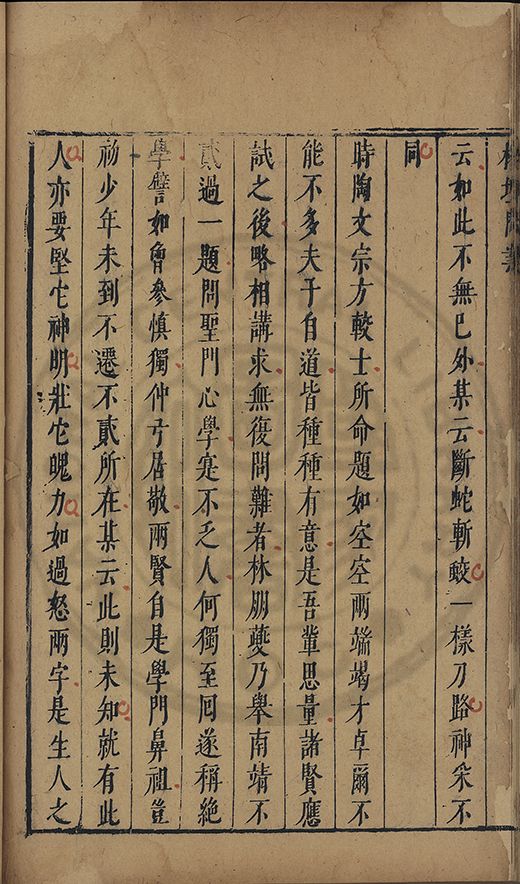 榕壇問業
云如此不無已外某云斷蛇斬蛟一樣刀路神采不
同
時陶文宗方較士所命題如空空兩端竭才卓爾不
能不多夫子自道皆種種有意是吾輩思量諸賢應
試之後略相講求無復問難者林朋夔乃舉南靖不
貳過一題問聖門心學寔不乏人何獨至回遂稱絕
學譬如曾參慎獨仲弓居敬兩賢自是學門鼻祖豈
初少年未到不遷不貳所在某云此則未知就有此
人亦要堅它神明壯它魄力如過怒兩字是生人之